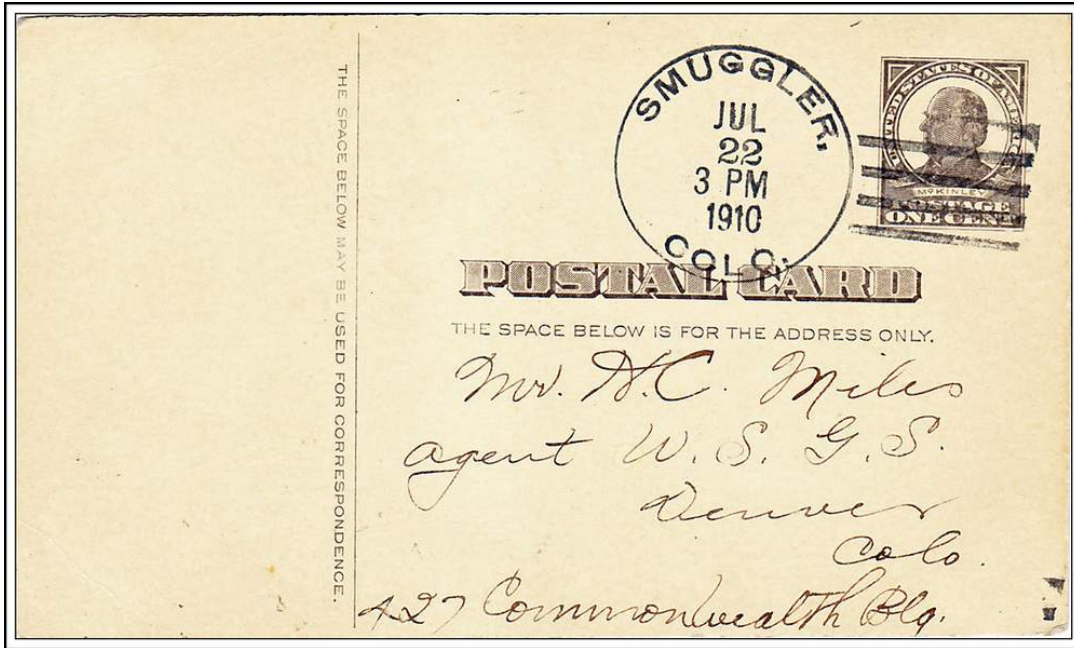 THE SPACE BELOW MAY BE USED FOR CORRESPONDENCE.
SMUGGLER,
JUL
22
3 PM
1910
COLO.
UNITED STATES OF AMERICA
McKINLEY
POSTAGE
ONE CENT
POSTAL CARD
THE SPACE BELOW IS FOR THE ADDRESS ONLY.
Mr. H.C. Miles
agent W. S. G. S.
Denver
Colo.
427 Commonwealth Blg.